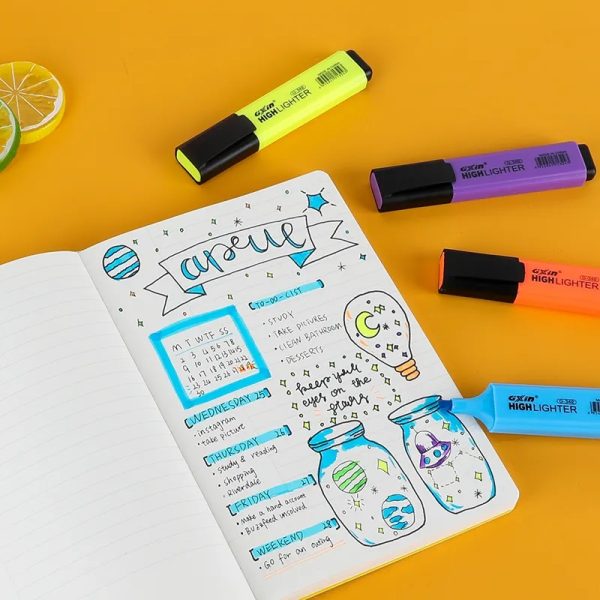 Gxin G-368
HIGHLIGHTER
Gxin G-368
HIGHLIGHTER
Gxin
HIGHLIGHTER
Gxin G-368
HIGHLIGHTER
TO-DO-LIST
• STUDY
• TAKE PICTURES
• CLEAN BATHROOM
• DESSERTS
M T W T F S S
keep you
eyes on the
stars
WEDNESDAY 25
• instagram
• take picture
THURSDAY 26
• study & reading
• shopping
• Riverdale
FRIDAY 27
• make a hand account
• Buzzfeed unsolved
WEEKEND 28
• Go for an outing